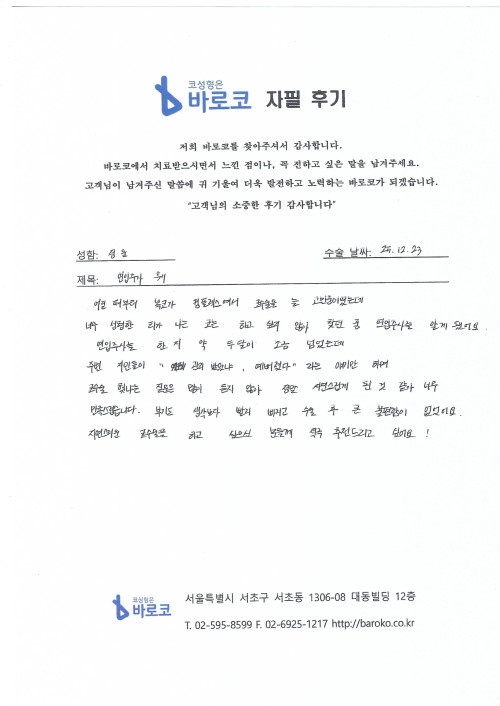 코성형은
바로코 자필 후기
저희 바로코를 찾아주셔서 감사합니다.
바로코에서 치료받으시면서 느낀 점이나, 꼭 전하고 싶은 말을 남겨주세요.
고객님이 남겨주신 말씀에 귀 기울여 더욱 발전하고 노력하는 바로코가 되겠습니다.
"고객님의 소중한 후기 감사합니다"
성함: 수술 날짜: 25.12.23
제목: 후기
어릴 때부터 복코가 컴플렉스여서 코수술은 늘 고민중이었는데
너무 성형한 티가 나는 코는 하고 싶지 않아 찾던 중 알게 됐어요.
한 지 약 두달이 조금 넘었는데
주변 지인들이 " 살 빠졌냐, 예뻐졌다" 라는 이야기만 하며
코수술 했냐는 질문은 많이 듣지 않아 정말 자연스럽게 된 것 같아 너무
만족스럽습니다. 붓기도 생각보다 빨리 빠지고 수술 후 큰 불편함이 없었어요.
자연스러운 코수술을 하고 싶으신 분들께 적극 추천드리고 싶어요!
코성형은
바로코
서울특별시 서초구 서초동 1306-08 대동빌딩 12층
T. 02-595-8599 F. 02-6925-1217 http://baroko.co.kr